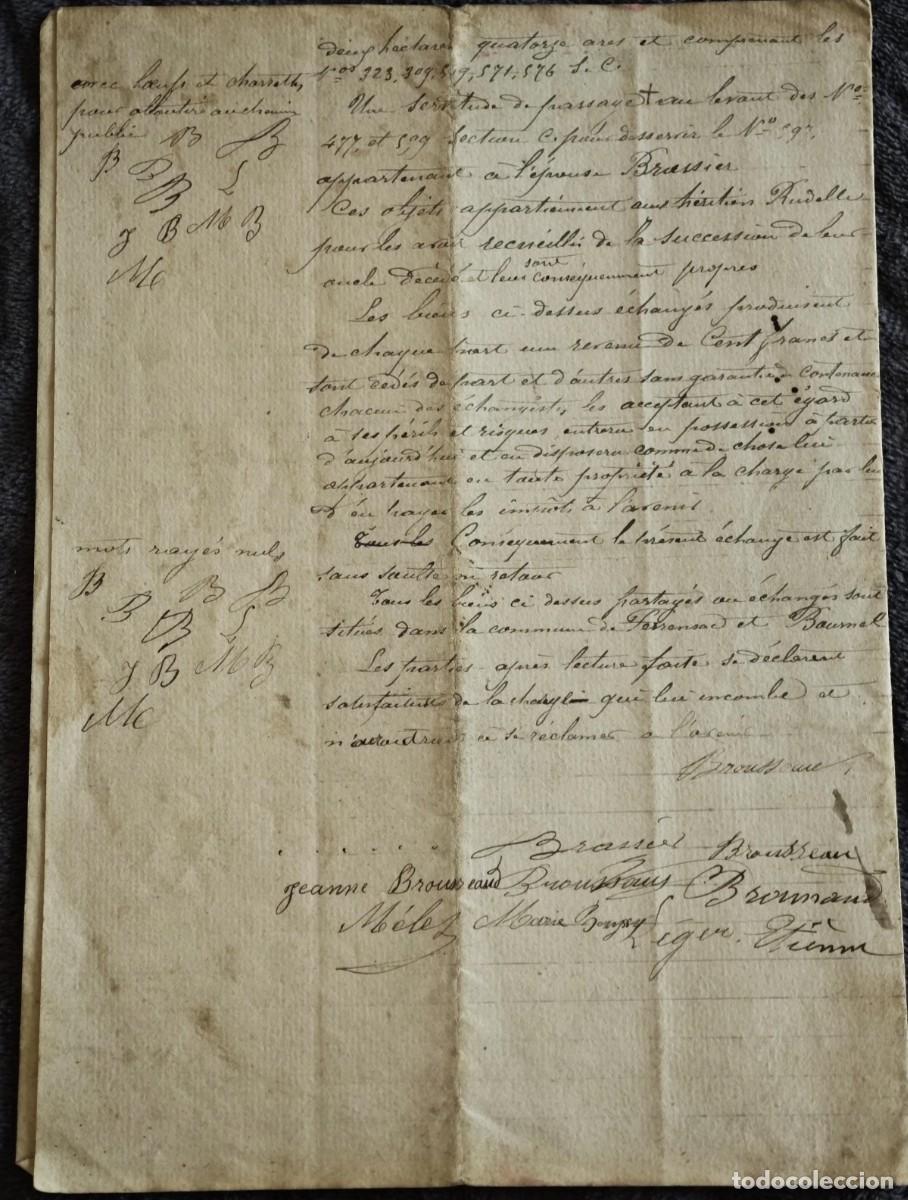 deux hectares quatorze ares et comprenant les
Nos 323, 309, 509, 571, 576 S. C.
avec bœufs et charrettes
pour aboutir au chemin
public
B B B
B B L
J B M B
M
Une servitude de passage + au levant des Nos
477, et 509 Section C. pour desservir le No 597
appartenant à l'épouse Brassier
Ces objets appartiennent aux héritiers Rudelle
pour les avoir recueillis de la succession de leur
oncle décédé et leur sont conséquemment propres
Les biens ci-dessus échangés produisent
de chaque part un revenu de Cent francs et
sont cédés de part et d'autres sans garantie de contenance
chacun des échangistes les acceptant à cet égard
à ses périls et risques, entrera en possession à partir
d'aujourd'hui et en disposera comme de chose lui
appartenant en toute propriété à la charge par lui
d'en payer les impôts à l'avenir
Tous les Conséquemment le présent échange est fait
sans soulte ni retour
mots rayés nuls
B B B
B B L
J B M B
M
Tous les biens ci dessus partagés ou échangés sont
situés dans la commune de Ferrensac et Bournel
Les parties après lecture faite se déclarent
satisfaites de la charge qui lui incombe et
n'avoir rien à se réclamer à l'avenir
Brousseau
Brassié Brousseau
Jeanne Brousseaud
Mélez Marie Léger Etienne
todocoleccion